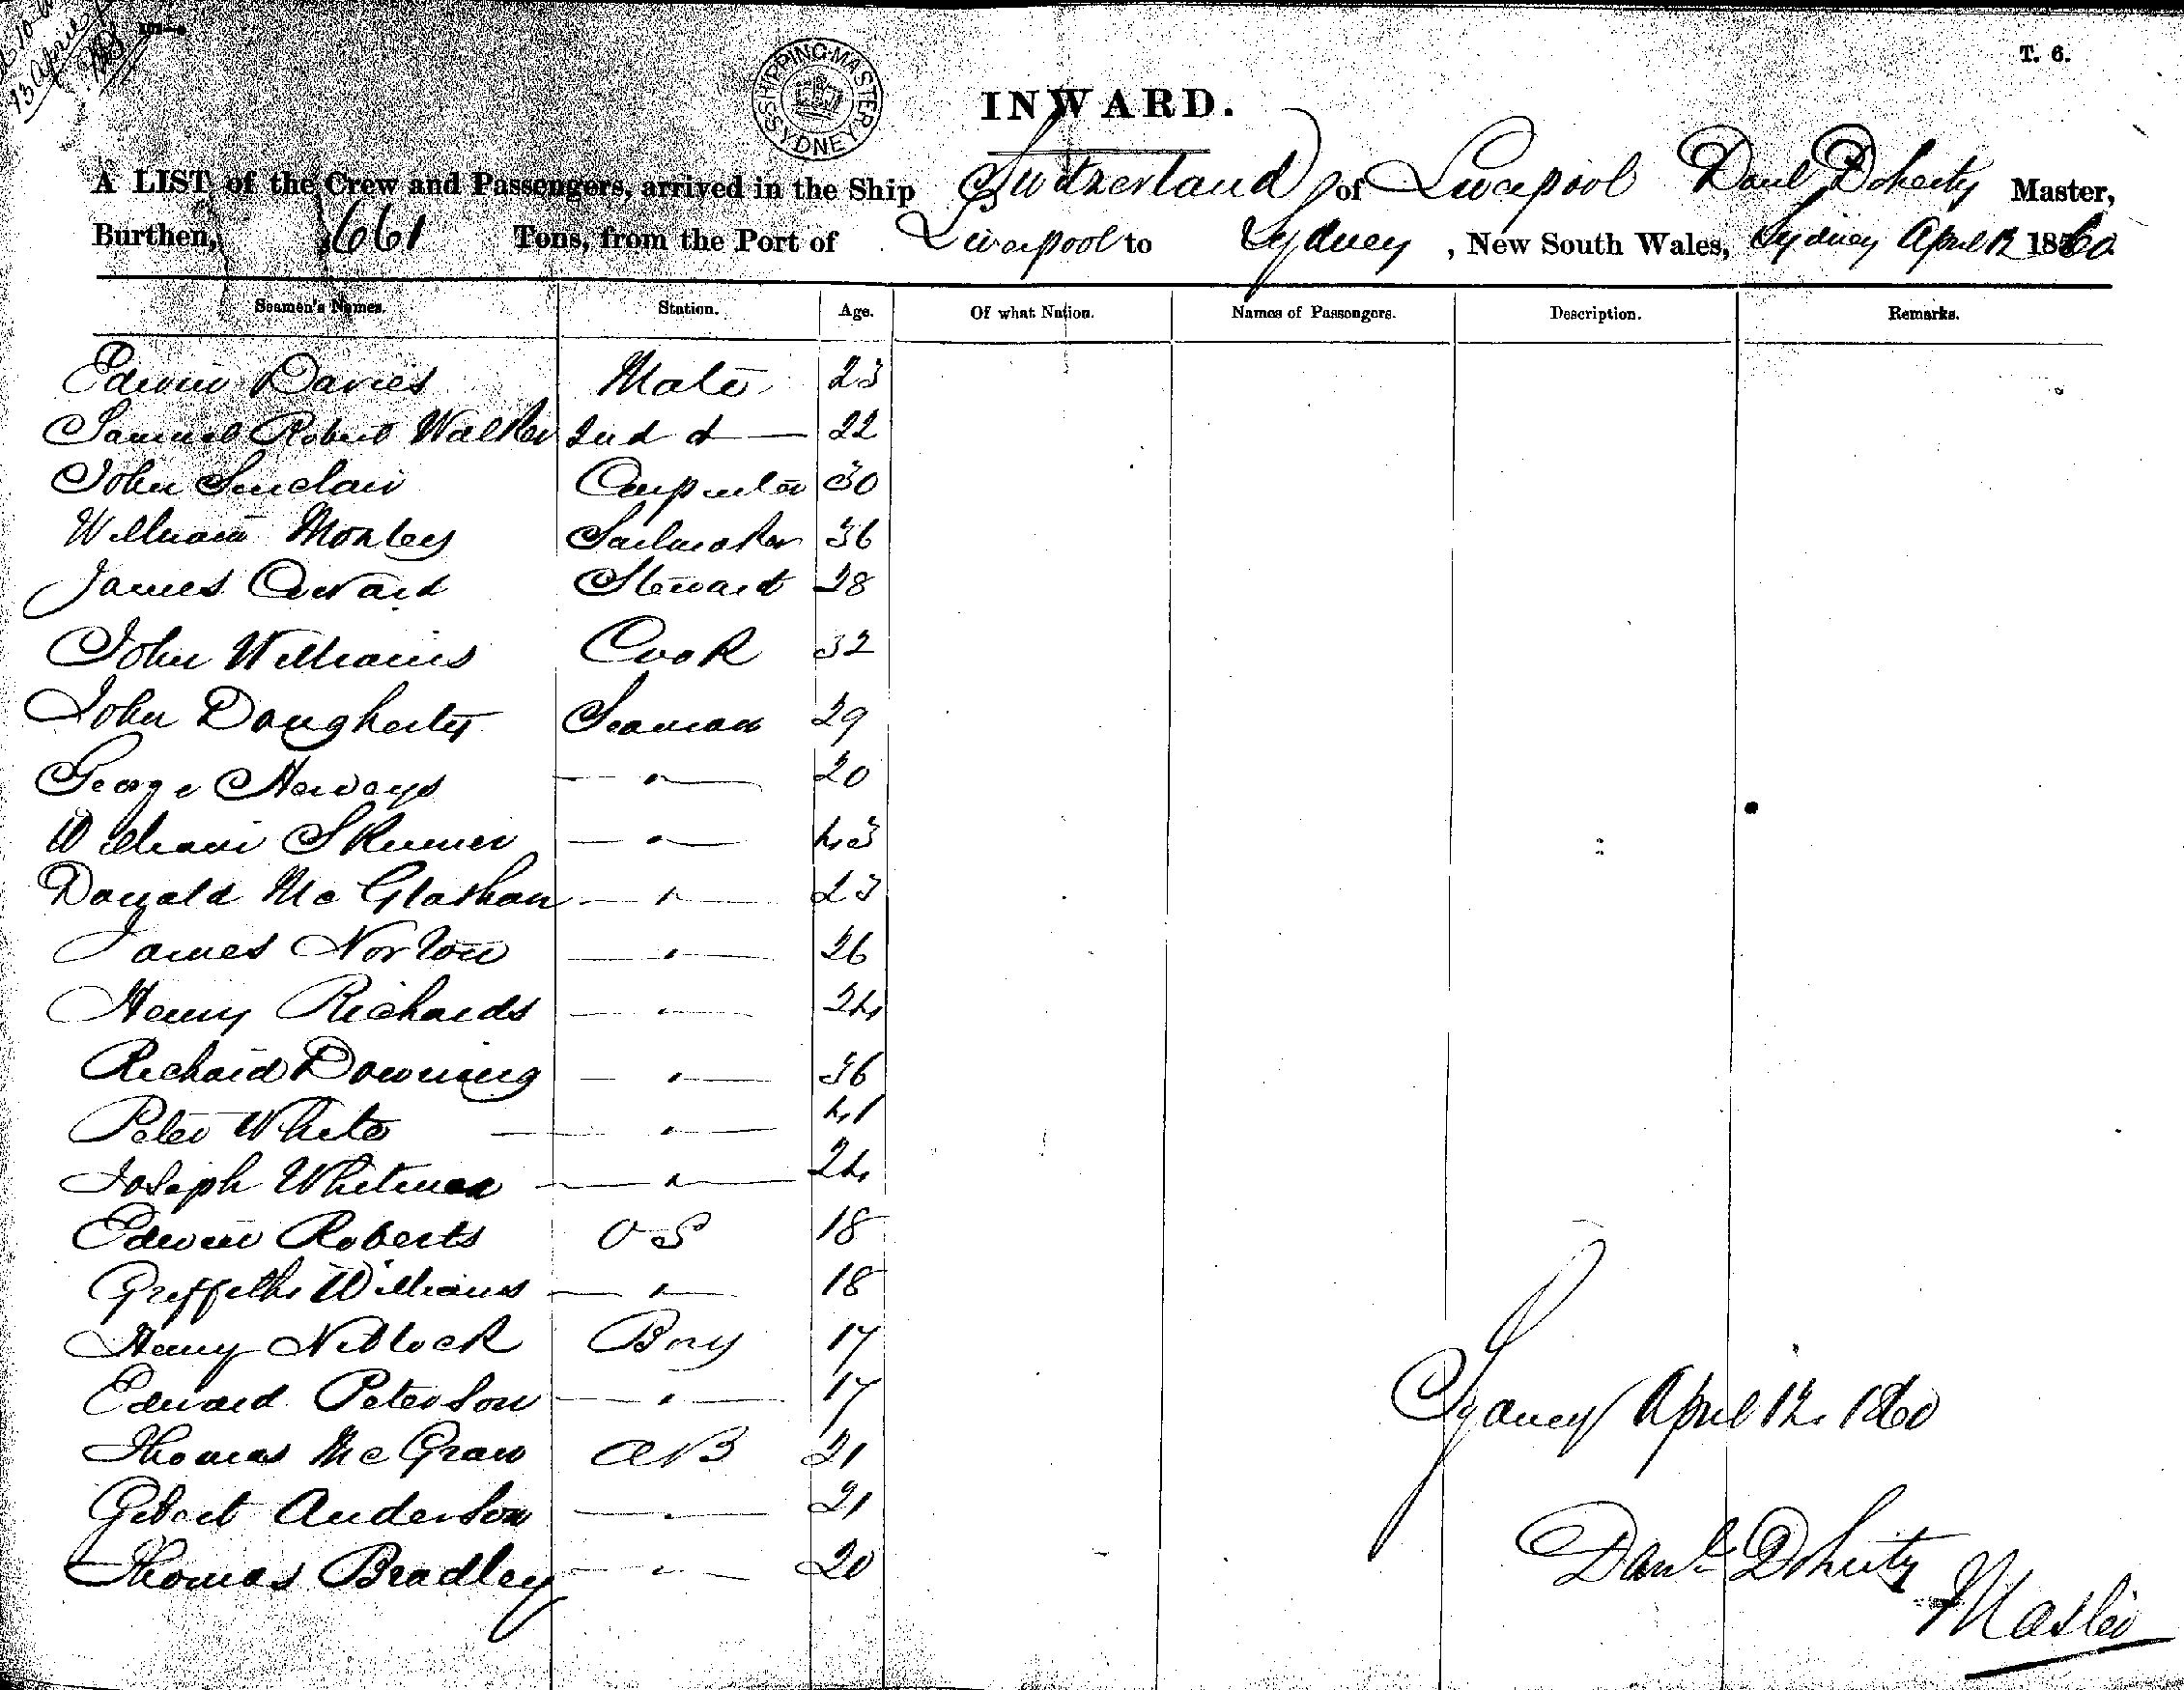 13 April
T. 6.
SHIPPING MASTER SYDNEY
INWARD.
A LIST of the Crew and Passengers, arrived in the Ship Switzerland of Liverpool Danl Doherty Master,
Burthen, 661 Tons, from the Port of Liverpool to Sydney, New South Wales, Sydney April 12 1860
Seamen's Names. Station. Age. Of what Nation. Names of Passengers. Description. Remarks.
Edwin Davies Mate 23
Samuel Robert Walker 2nd d — 22
John Sinclair Carpenter 30
William Morley Sailmaker 36
James Coward Steward 28
John Williams Cook 32
John Dougherty Seaman 29
George Herveys — " — 20
William Skinner — " — 43
Donald Mc Glashan — " — 23
James Norton — " — 26
Henry Richards — " — 24
Richard Downing — " — 36
Peter White — " — 41
Joseph Whitman — " — 24
Edwin Roberts O S 18
Griffiths Williams — " — 18
Henry Niblock Boy 17
Edward Peterson — " — 17
Thomas Mc Graw AB 21
Gilbert Anderson — " — 21
Thomas Bradley — " — 20
Sydney April 12. 1860
Danl Doherty
Master